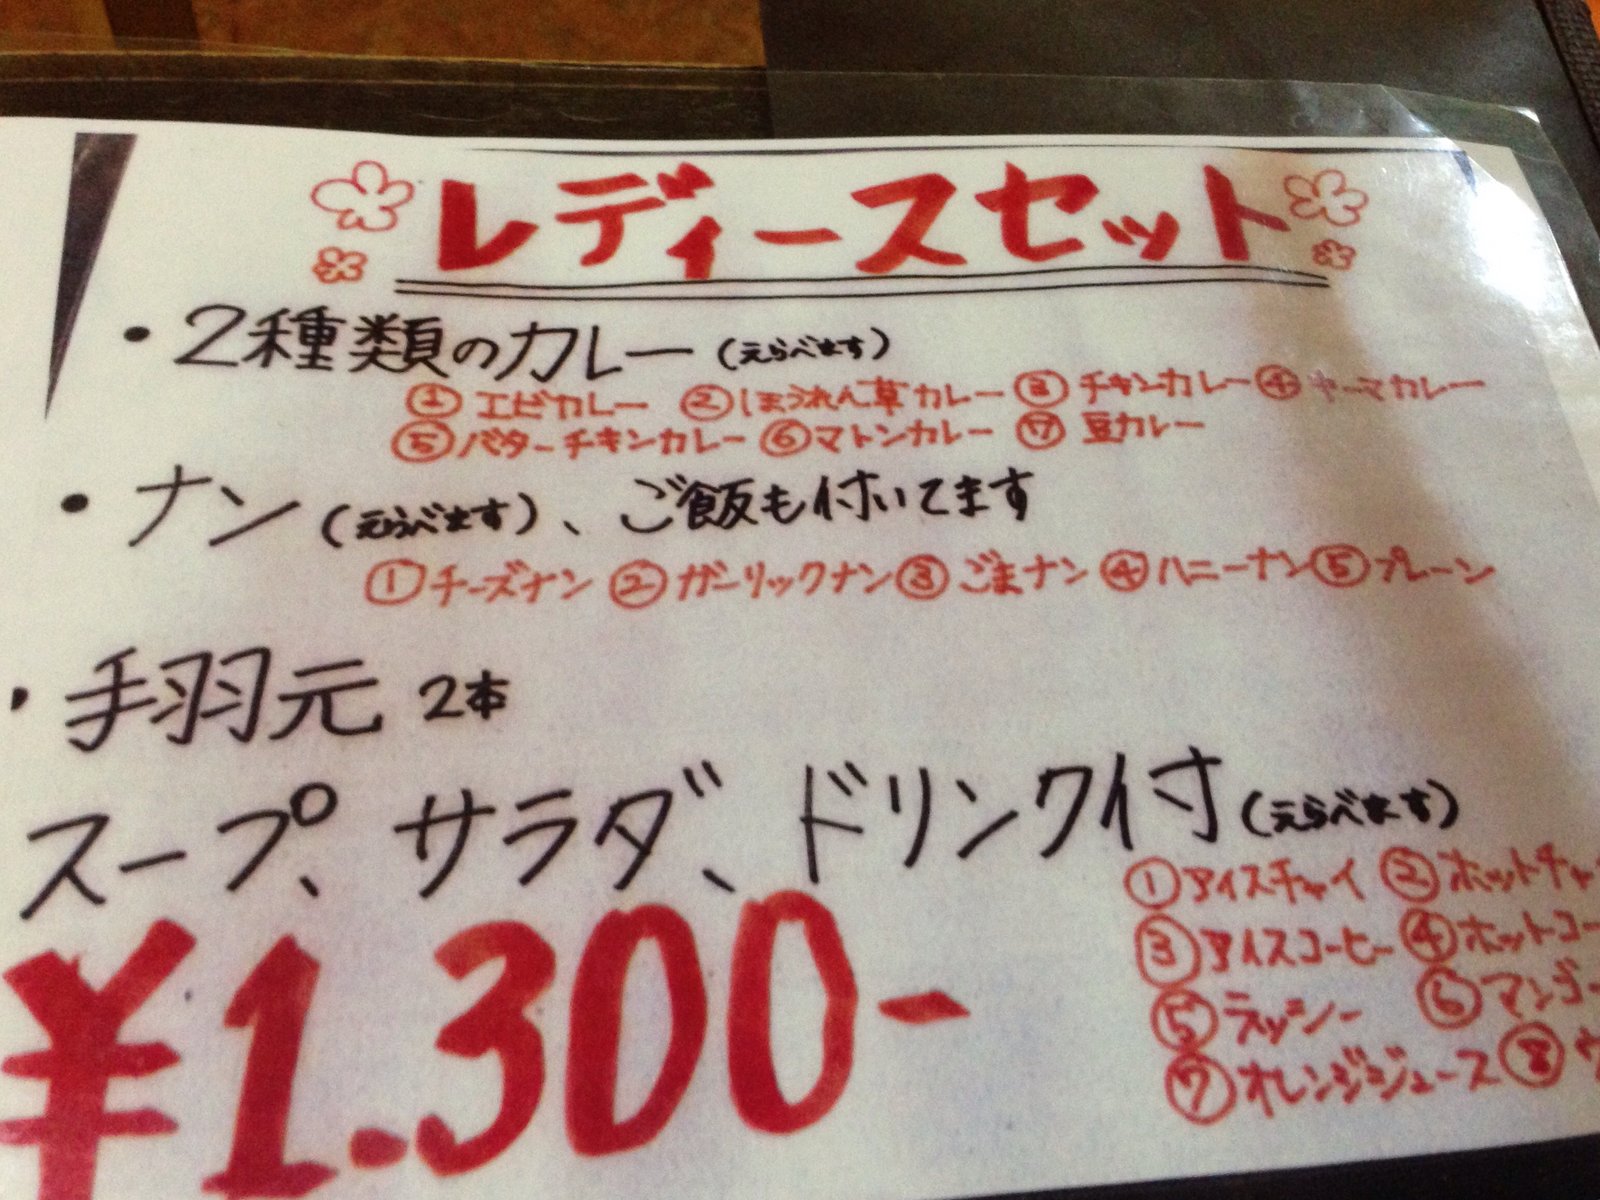 レディースセット
・2種類のカレー(えらべます)
①エビカレー ②ほうれん草カレー ③チキンカレー ④キーマカレー
⑤バターチキンカレー ⑥マトンカレー ⑦豆カレー
・ナン(えらべます)、ご飯も付いてます
①チーズナン ②ガーリックナン ③ごまナン ④ハニーナン ⑤プレーン
・手羽元 2本
スープ、サラダ、ドリンク付(えらべます)
①アイスチャイ ②ホットチャ
③アイスコーヒー ④ホットコー
⑤ラッシー ⑥マンゴー
⑦オレンジジュース ⑧ウ
¥1.300-